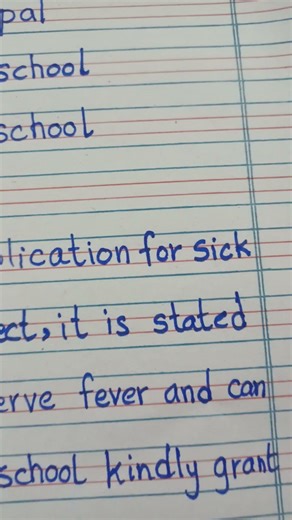 pal
school
school
lication for sick
ect, it is stated
erve fever and can
school kindly grant